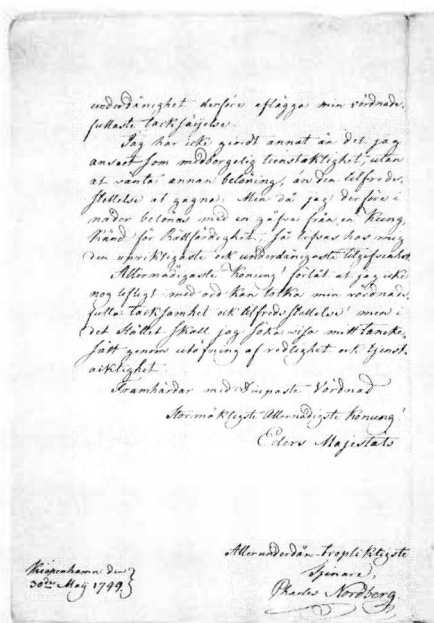 underdånighet derföre aflägga min vördnads-
fullaste tacksäijelse.
Jag har icke giordt annat än det jag
ansett som medborgelig tienstaktighet, utan
at vänta annan belöning, än den tilfreds-
ställelse at gagna: Men då jag derföre i
nåder belönas med en gåfva från en Kung
känd för Rättfärdighet; så upväs hos mig
den uprigtigaste och underdånigaste tilgifvenhet.
Allernådigaste Konung! förlåt at jag icke
nog lifligt med ord kan tolka min vördnads-
fulla tacksamhet och tilfredsställelse! men i
det stället skall jag söka visa mitt tancke-
sätt genom utöfning af redlighet och tjenst-
aktighet.
Framhärdar med Diupaste Vördnad
Stormäktigste Allernådigste Konung!
Eders Majestäts
Allerunderdån-tropliktigste
tjenare,
Nordberg
Kiöpenhamn den
30de Maÿ 1799